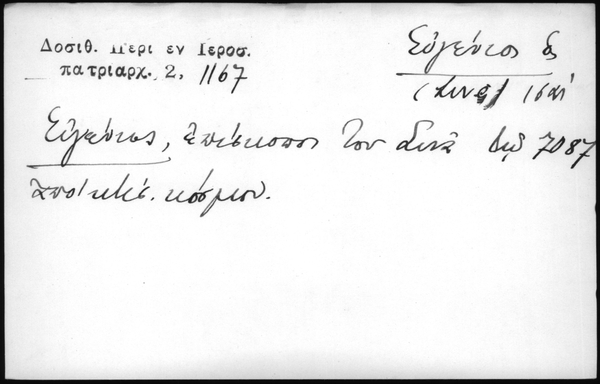 Δοσιθ. Περι εν Ιεροσ.
πατριαρχ. 2, 1167
Εὐγένιος
Εὐγένιος, ἐπίσκοπος τοῦ Σινᾶ 7087
ἀπὸ κτίσ. κόσμου.